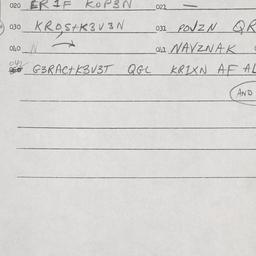 020 ER1F KOP3N 022 —
030 KROS+K3V3N 032 POVZN QR
040 N 042 NAVZNAK
G3RAC+K3V3T QGL KR1XN AF AL
AND